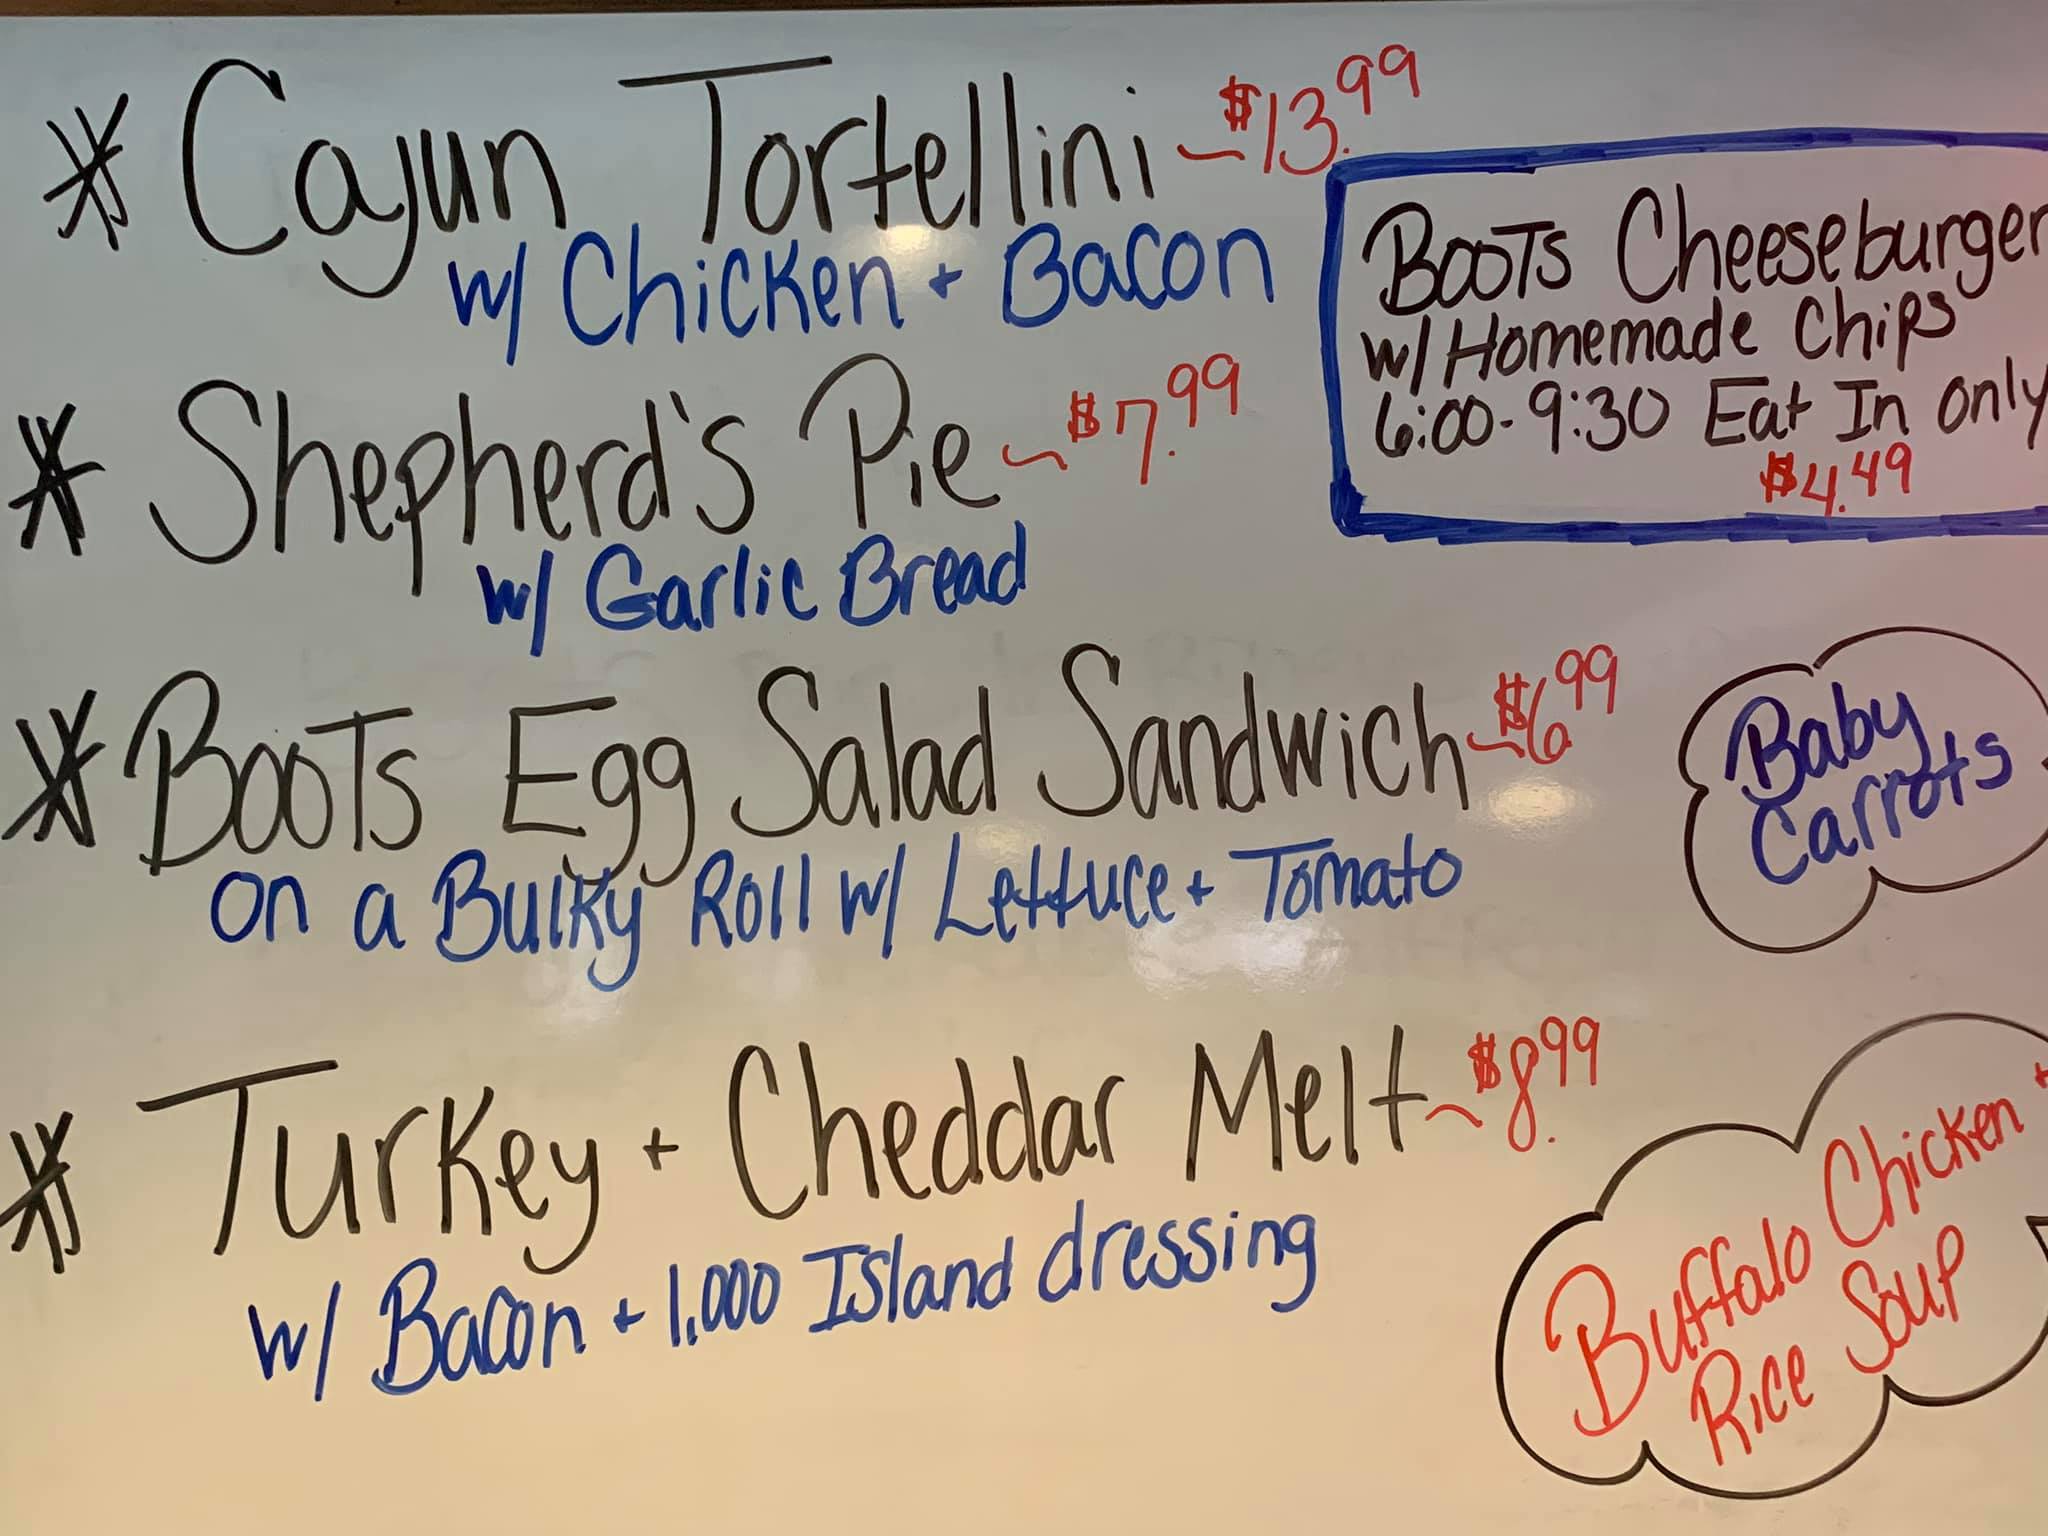 * Cajun Tortellini ~ $13.99
w/ Chicken + Bacon
* Shepherd's Pie ~ $7.99
w/ Garlic Bread
* Boots Egg Salad Sandwich ~ $6.99
on a Bulky Roll w/ Lettuce + Tomato
* Turkey + Cheddar Melt ~ $8.99
w/ Bacon + 1,000 Island dressing
Boots Cheeseburger
w/ Homemade Chips
6:00-9:30 Eat In only
$4.49
Baby
Carrots
Buffalo Chicken +
Rice Soup